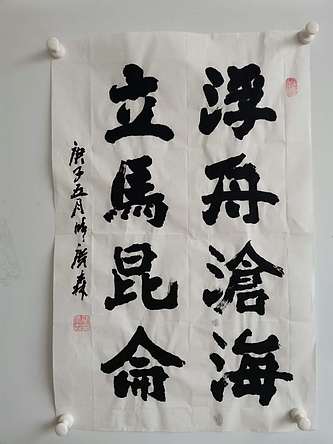 浮舟滄海
立馬崑崙
庚子五月